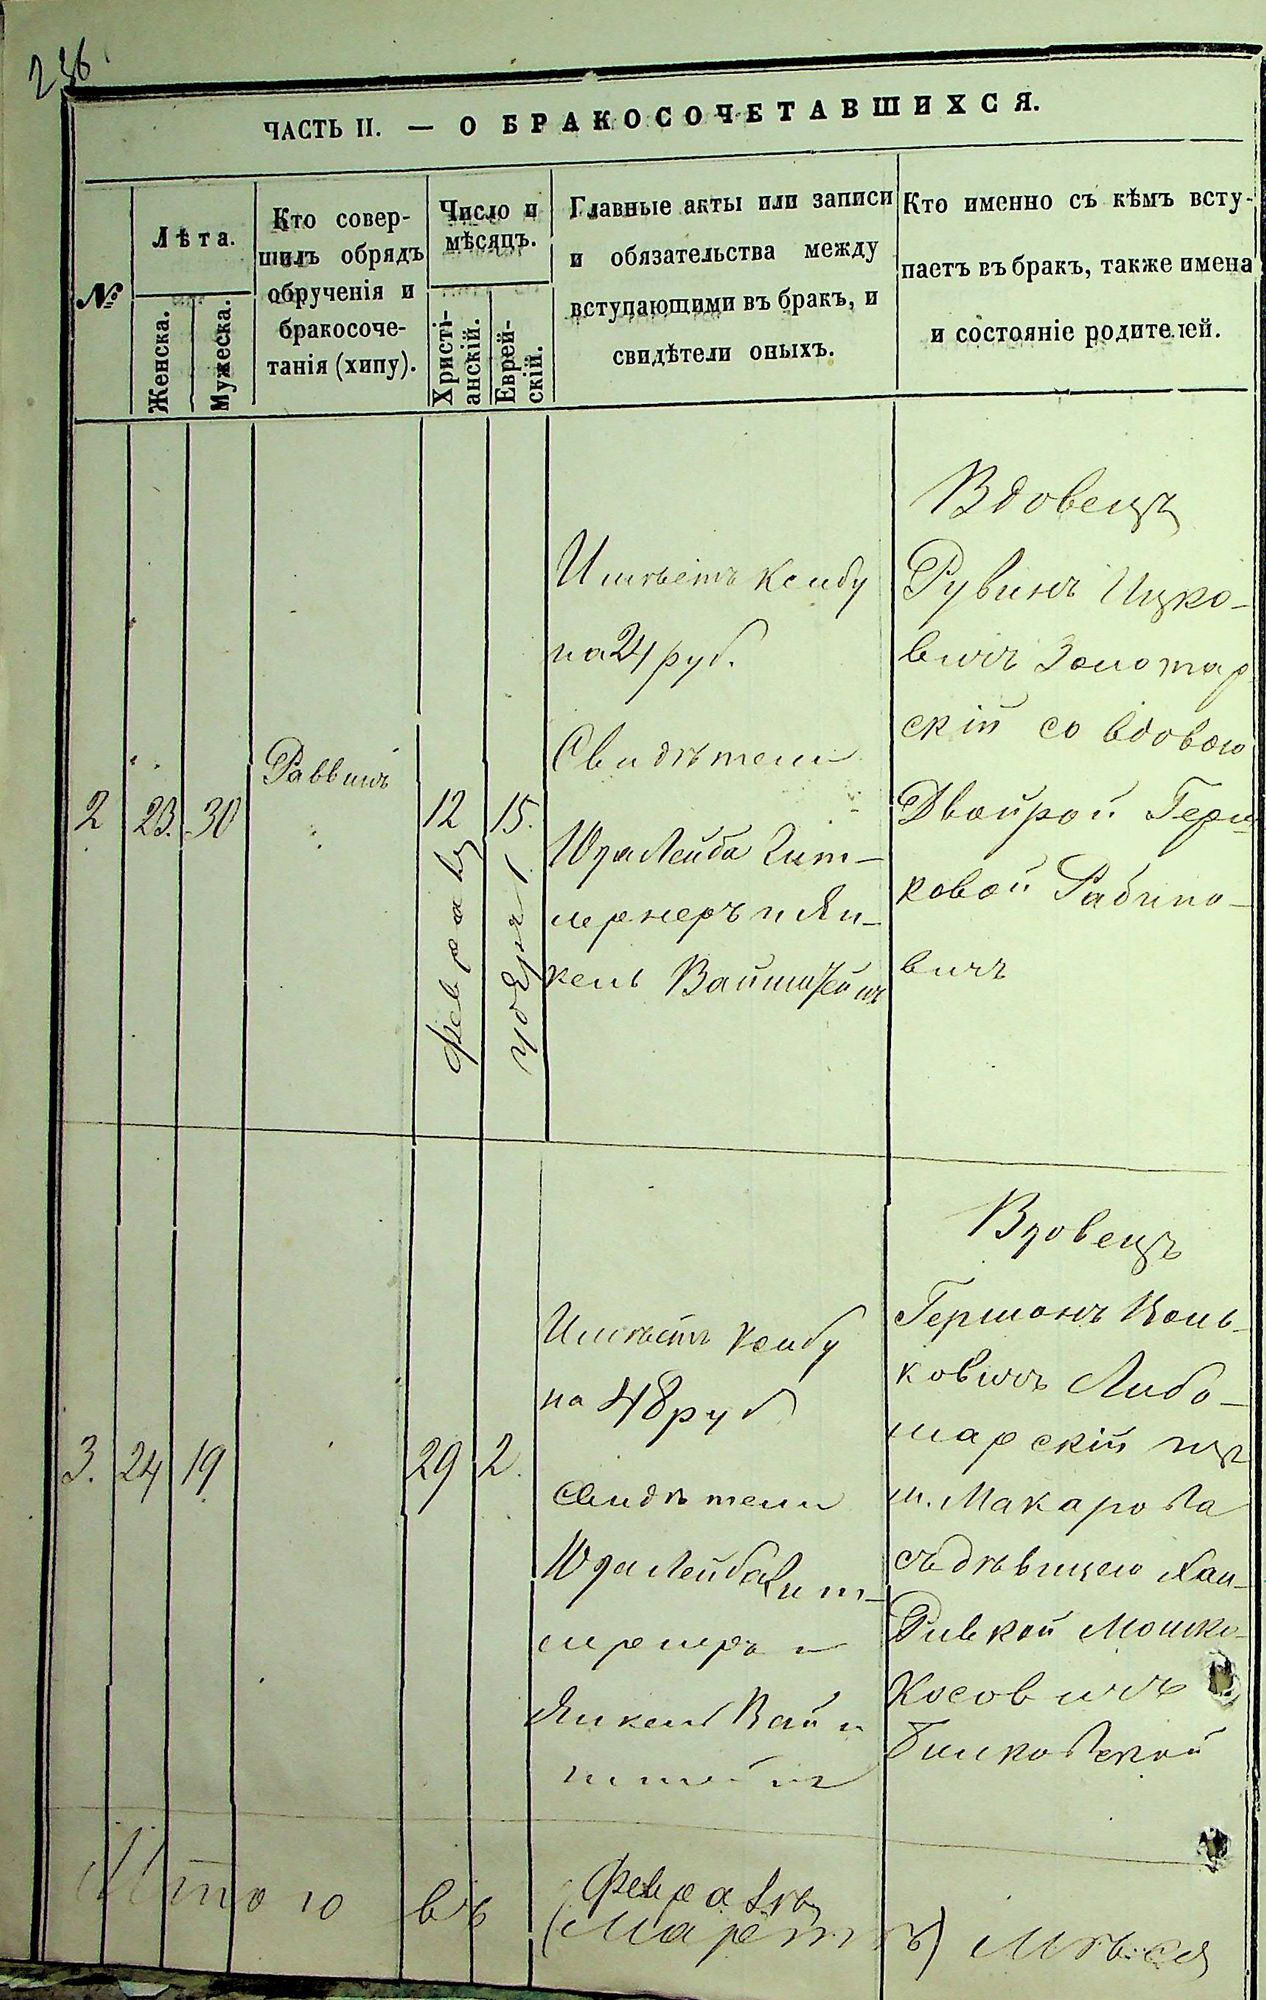 236.
ЧАСТЬ II. — О БРАКОСОЧЕТАВШИХСЯ.
№
Лѣта.
Женска.
Мужеска.
Кто совер-
шилъ обрядъ
обрученія и
бракосоче-
танія (хипу).
Число и
мѣсяцъ.
Христі-
анскій.
Еврей-
скій.
Главные акты или записи
и обязательства между
вступающими въ бракъ, и
свидѣтели оныхъ.
Кто именно съ кѣмъ всту-
паетъ въ бракъ, также имена
и состояніе родителей.
2
23.
30
Раввинъ
12
15.
Имѣетъ Ксибу
на 24 руб.
Свидѣтели
Юда Лейба
и Ян-
кель Вайнштейнъ
Вдовецъ
Рувинъ Ицко-
вичъ Золотар
скій со вдовою
Двойрой Герш
ковой Рабино-
вичъ
3.
24
19
29
2.
Имѣетъ Ксибу
на 48 руб
свидѣтели
Юда Лейба
и
Янкель Вайн
штейнъ
Вдовецъ
Гершонъ
ковичъ Любо-
марскій изъ
м. Макарова
съ дѣвицею Хаи-
Ривкой Мошко-
Косовичъ
Итого въ
Февралѣ
(Мартѣ) Мѣсяц